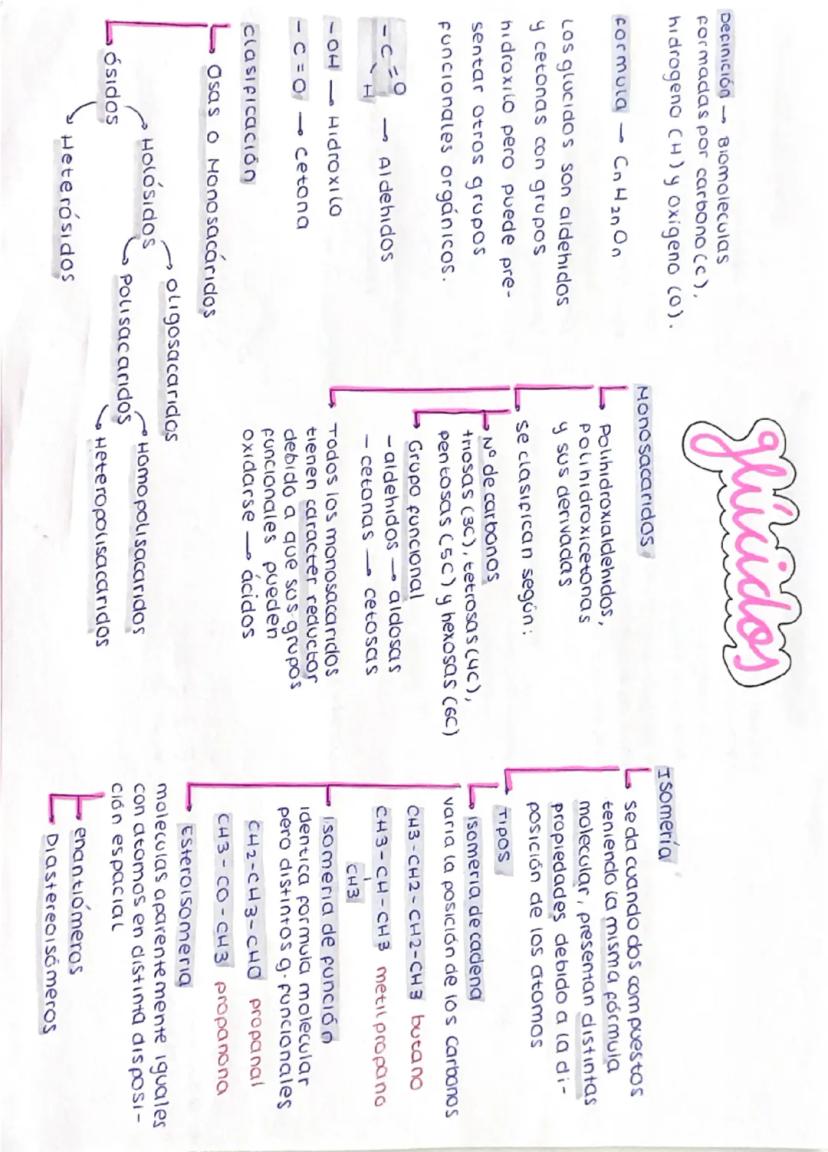 glúcidos
Definición → Biomoleculas
formadas por carbono (C),
hidrogeno (H) y oxigeno (O).
Formula → CnH2nOn
Los glucidos son aldehidos
y cetonas con grupos
hidroxilo pero puede pre-
sentar otros grupos
funcionales orgánicos.
-C=O
H → Aldehidos
-OH → Hidroxilo
-C=O → cetona
Clasificación
Osas o Monosacáridos
Ósidos
Holósidos
oligosacaridos
Polisacaridos
Homopolisacaridos
Heteropolisacaridos
Heterósidos
Monosacaridos
Polihidroxialdehidos,
Polihidroxicetonas
y sus derivadas
se clasifican según:
Nº de carbonos
triosas (3C), tetrosas (4C),
pentosas (5C) y hexosas (6C)
Grupo funcional
- aldehidos → aldosas
- cetonas → cetosas
Todos los monosacaridos
tienen caracter reductor
debido a que sus grupos
funcionales pueden
oxidarse → ácidos
Isomería
Se da cuando dos compuestos
teniendo la misma fórmula
molecular, presentan distintas
propiedades debido a la di-
posición de los atomos
Tipos
Isomeria de cadena
varia la posición de los carbonos
CH3-CH2-CH2-CH3 butano
CH3-CH-CH3 metilpropano
CH3
Isomeria de función
Identica formula molecular
pero distintos g. funcionales
CH2-CH3-CHO propanal
CH3-CO-CH3 propanona
Esteroisomeria
moleculas aparentemente iguales
con atomos en distinta disposi-
ción espacial
enantiómeros
Diastereoisómeros